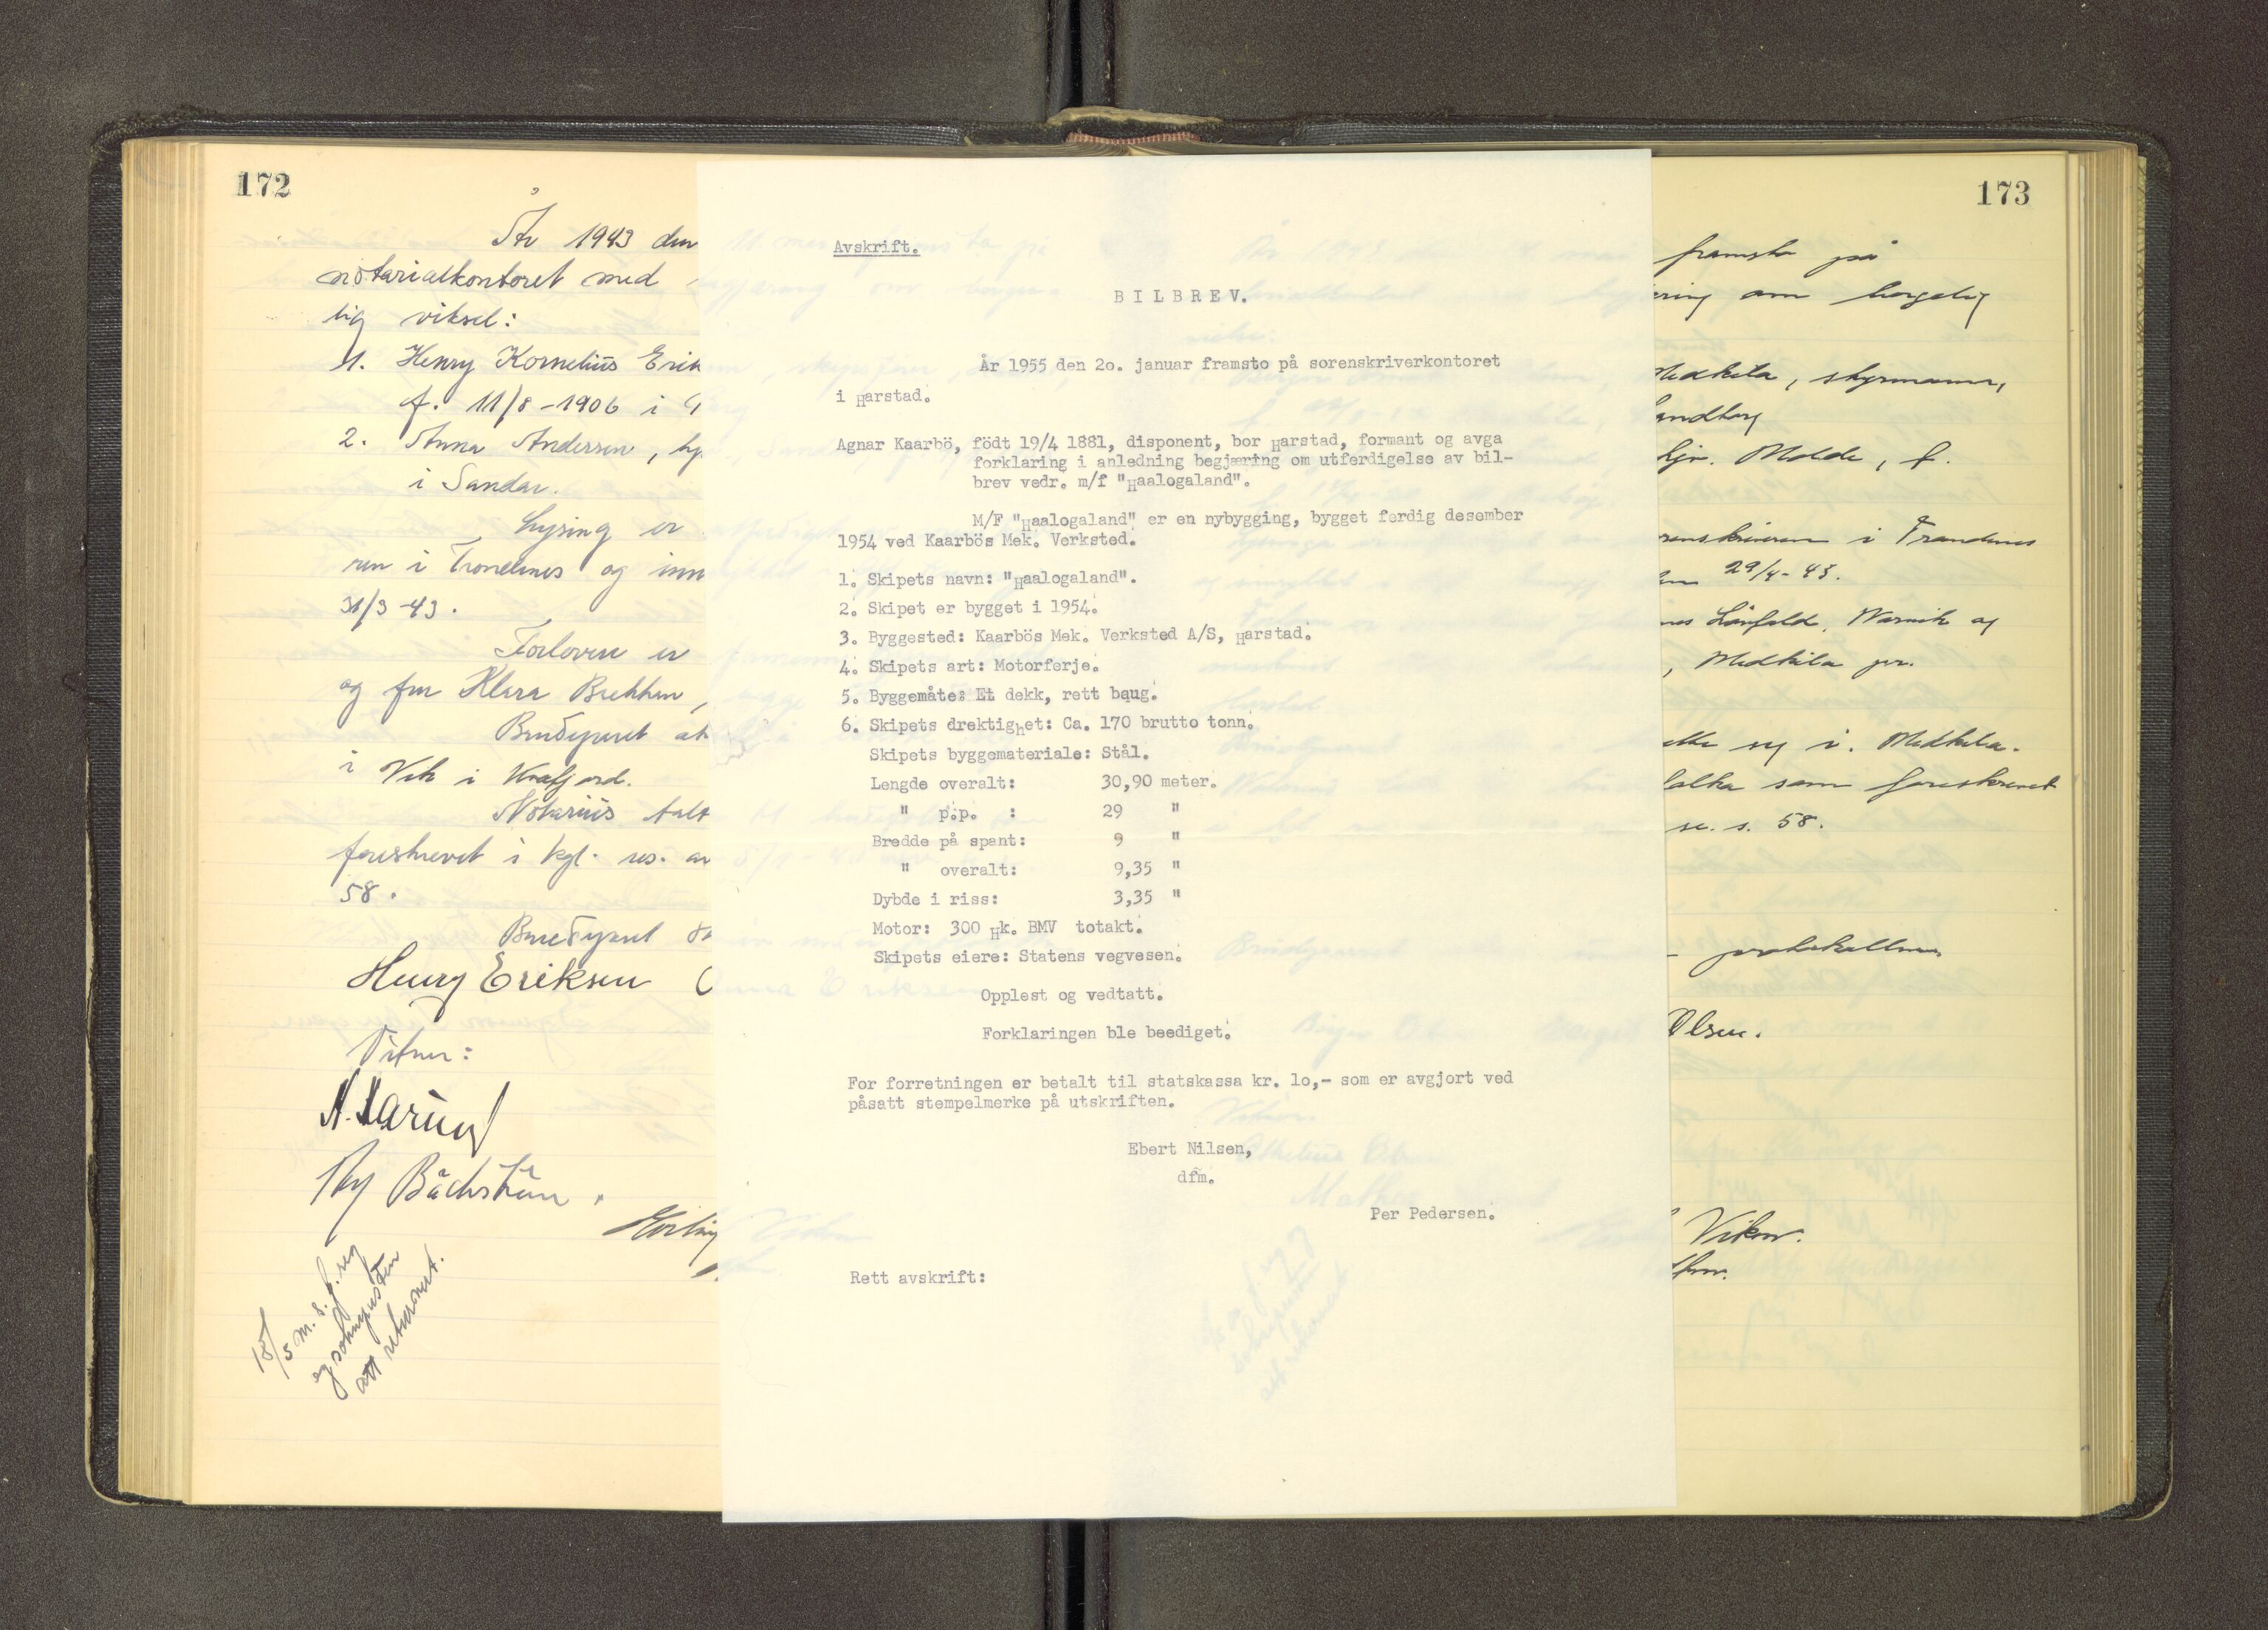 172
År 1943 den
notarialkontoret med
lig viksel:
1. Henry Kornelius Erik
f. 11/8-1906 i
2. Anna Andersen,
i Sandar.
Lysing er
ren i Trondenes og inn
31/3-43.
Forlovere er
og fru Klara Brekken,
Brudeparet
i Vik i
Notarius talt
foreskrevet i kgl. res. av
58.
Brudeparet
Henry Eriksen
Vitner:
og
att returnert.
Avskrift.
BILBREV.
År 1955 den 2o. januar framsto på sorenskriverkontoret
i Harstad.
Agnar Kaarbö, födt 19/4 1881, disponent, bor Harstad, formant og avga
forklaring i anledning begjæring om utferdigelse av bil-
brev vedr. m/f "Haalogaland".
M/F "Haalogaland" er en nybygging, bygget ferdig desember
1954 ved Kaarbös Mek. Verksted.
1. Skipets navn: "Haalogaland".
2. Skipet er bygget i 1954.
3. Byggested: Kaarbös Mek. Verksted A/S, Harstad.
4. Skipets art: Motorferje.
5. Byggemåte: Et dekk, rett baug.
6. Skipets drektighet: Ca. 170 brutto tonn.
Skipets byggemateriale: Stål.
Lengde overalt: 30,90 meter.
" p.p. : 29 "
Bredde på spant: 9 "
" overalt: 9,35 "
Dybde i riss: 3,35 "
Motor: 300 Hk. BMV totakt.
Skipets eiere: Statens vegvesen.
Opplest og vedtatt.
Forklaringen ble beediget.
For forretningen er betalt til statskassa kr. 1o,- som er avgjort ved
påsatt stempelmerke på utskriften.
Ebert Nilsen,
dfm.
Per Pedersen.
Rett avskrift:
173
framsto på
ering om borgelig
Medkila, styrmann,
andtorg
Molde, f.
renskriveren i Trondenes
29/4-43.
og
, Medkila pr.
seg i Medkila.
som foreskrevet
se. s. 58.
protokollen
Olsen.